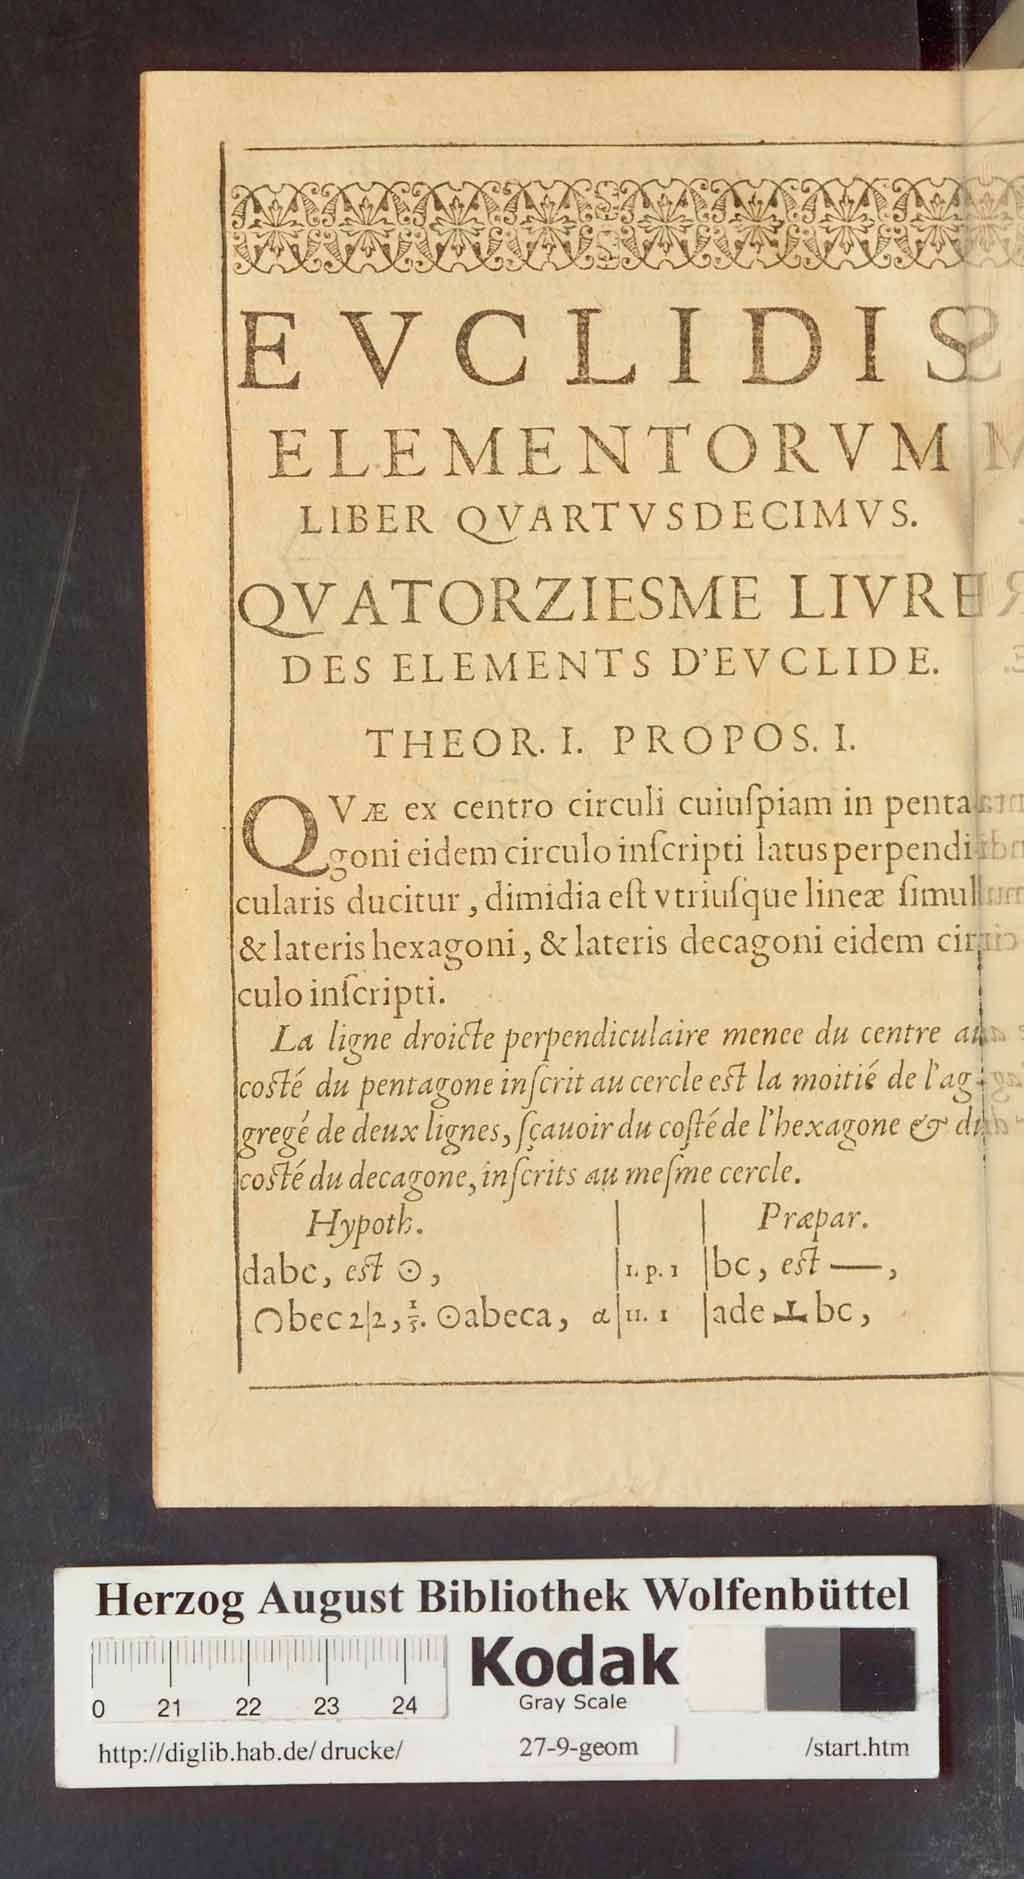 EVCLIDIS
ELEMENTORVM
LIBER QVARTVSDECIMVS.
QVATORZIESME LIVRE
DES ELEMENTS D'EVCLIDE.
THEOR. I. PROPOS. I.
QVÆ ex centro circuli cuiuſpiam in penta
goni eidem circulo inſcripti latus perpendi
cularis ducitur, dimidia eſt vtriuſque lineæ ſimul
& lateris hexagoni, & lateris decagoni eidem cir
culo inſcripti.
La ligne droicte perpendiculaire menee du centre au
coſté du pentagone inſcrit au cercle eſt la moitié de l'ag-
gregé de deux lignes, ſçauoir du coſté de l'hexagone & du
coſté du decagone, inſcrits au meſme cercle.
Hypoth. | | Præpar.
dabc, eſt ⊙, |1. p. 1 |bc, eſt —,
∩bec 2|2, 1/5. ⊙abeca, α|11. 1 |ade ⊥ bc,
Herzog August Bibliothek Wolfenbüttel
Kodak
Gray Scale
0 21 22 23 24
http://diglib.hab.de/drucke/ 27-9-geom /start.htm